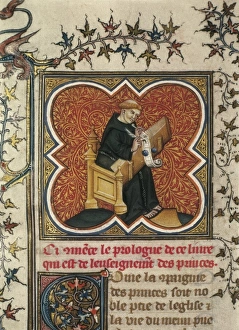 Ci comēce le prologue de ce livre
qui est de lenseignemēt des princes.
Oute la maignie
des princes sont no
ble ꝑtie de leglise ⁊
la vie du menu pue